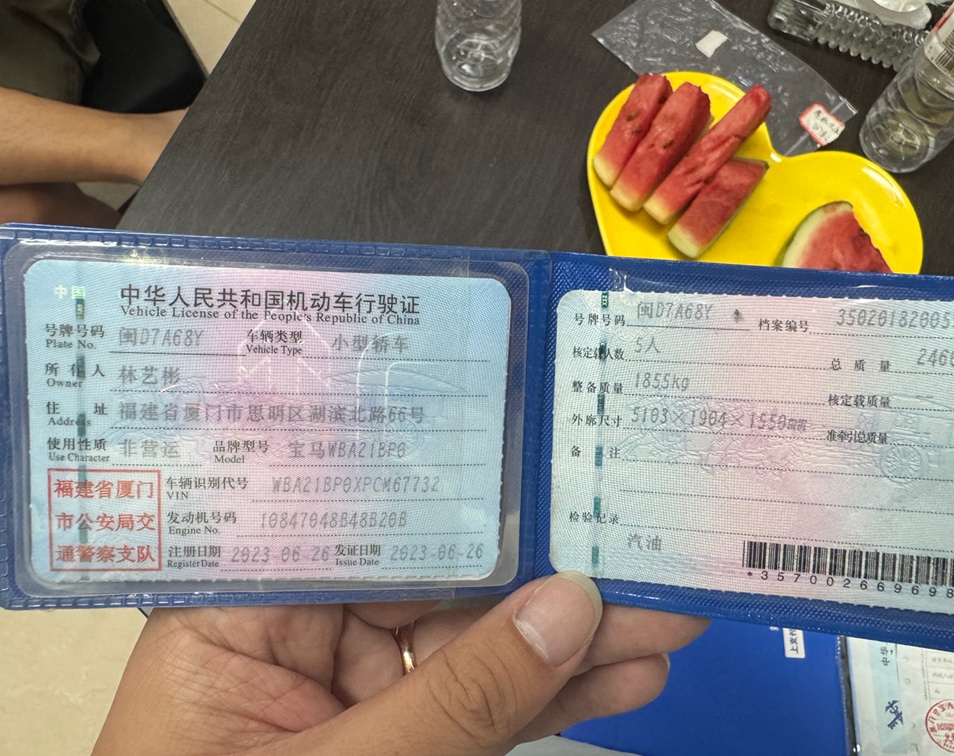 中国
中华人民共和国机动车行驶证
Vehicle License of the People's Republic of China
号牌号码 闽D7A68Y 车辆类型 小型轿车
Plate No. Vehicle Type
所有人 林艺彬
Owner
住址 福建省厦门市思明区湖滨北路66号
Address
使用性质 非营运 品牌型号 宝马WBA21BP0
Use Character Model
福建省厦门
市公安局交
通警察支队
车辆识别代号 WBA21BP0XPCM67732
VIN
发动机号码 10847048B48B20B
Engine No.
注册日期 2023-06-26 发证日期 2023-06-26
Register Date Issue Date
号牌号码 闽D7A68Y 档案编号 35020182005
核定载人数 5人 总质量 2460
整备质量 1855kg 核定载质量 --
外廓尺寸 5103×1904×1550mm 准牵引总质量
备注
检验记录
汽油
*357002669698